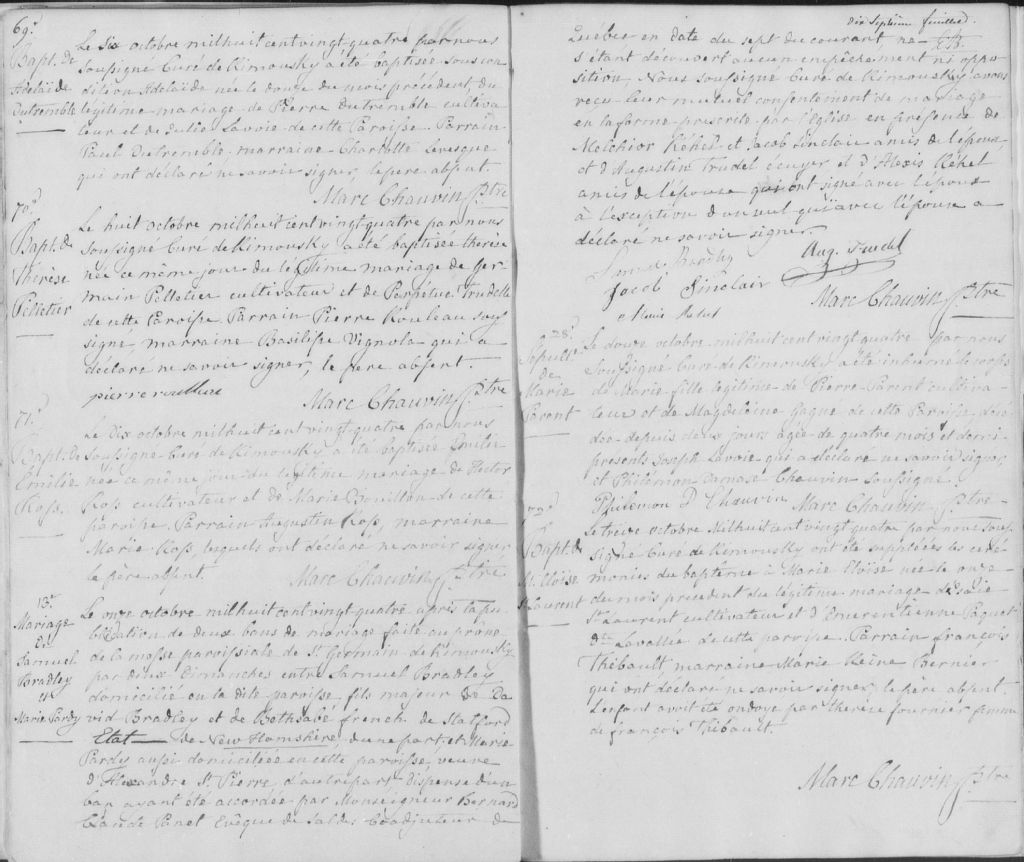 69.e
Bapt. de
Adelaïde
Dutremble
Le Six octobre milhuit cent vingt quatre par nous
Soussigné Curé de Rimousky a été baptisée sous con
dition Adelaïde née le douze du mois précédent, du
légitime mariage de Pierre Dutremble cultiva-
teur et de Julie Lavoie de cette Paroisse. Parrain
Paul Dutremble, marraine Charlotte Levesque
qui ont déclaré ne savoir signer, le père absent.
Marc Chauvin Ptre
70.e
Bapt. de
Thérèse
Pelletier
Le huit octobre milhuit cent vingt quatre par nous
Soussigné Curé de Rimousky a été baptisée Therese
née ce même jour du légitime mariage de Ger-
main Pelletier cultivateur et de Perpétue Trudelle
de cette Paroisse. Parrain Pierre Rouleau sous
signé, marraine Basilisse Vignola qui a
déclaré ne savoir signer, le père absent.
pierre roulleau
Marc Chauvin Ptre
71.e
Bapt. de
Emélie
Ross.
Le Dix octobre milhuit cent vingt quatre par nous
Soussigné Curé de Rimousky a été baptisée Emélie
née ce même jour du légitime mariage de Hector
Ross cultivateur et de Marie Brouillon de cette
paroisse. Parrain Augustin Ross, marraine
Marie Ross, lesquels ont déclaré ne savoir signer
le père absent.
Marc Chauvin Ptre
13.e
Mariage
de
Samuel
Bradley
et
Marie Pardy
Le onze octobre milhuit cent vingt quatre après la pu
blication de deux bans de mariage faite au prône
de la messe paroissiale de St. Germain de Rimousky
par deux Dimanches entre Samuel Bradley
domicilié en la dite paroisse, fils majeur de Da
vid Bradley et de Bethsabé french de Statford
Etat de New Hamshire, d'une part, et Marie
Pardy aussi domiciliée en cette paroisse, veuve
d'Alexandre St. Pierre, d'autre part, Dispense d'un
ban ayant été accordée par Monseigneur Bernard
Claude Panet Evêque de Saldes Coadjuteur de
Dix Septième feuillet.
Québec en date du sept du courant ne
s'étant découvert aucun empêchement ni oppo
sition, Nous Soussigné Curé de Rimousky avons
reçu leur mutuel consentement de mariage
en la forme prescrite par l'Eglise en présence de
Melchior Réhel et Jacob Sinclair amis de l'époux
et d'Augustin Trudel écuyer et d'Alexis Réhel
amis de l'épouse qui ont signé avec l'époux
à l'exception d'un seul qui avec l'épouse a
déclaré ne savoir signer.
Aug. Trudel
Jacob Sinclair
Marc Chauvin Ptre
28.e
Sépult.
de
Marie
Parent
Le douze octobre milhuit cent vingt quatre par nous
Soussigné Curé de Rimousky a été inhumé le corps
de Marie fille légitime de Pierre Parent cultiva-
teur et de Magdeleine Gagné de cette Paroisse décé-
dée depuis deux jours agée de quatre mois et demi
présents Joseph Lavoie qui a déclaré ne savoir signer,
et Philemon Damase Chauvin Soussigné
Philemon D Chauvin
Marc Chauvin Ptre
72.e
Bapt. de
M. Eloïse
St Laurent
Le treize octobre Milhuit cent vingt quatre par nous sous
signé Curé de Rimousky ont été suppléées les céré-
monies du baptême à Marie Eloïse née le onze
du mois précédent du légitime mariage d'Isaie
St. Laurent cultivateur et d'Emerentienne Paquet
dte Lavallée de cette paroisse. Parrain françois
Thibault marraine Marie Reine Bernier
qui ont déclaré ne savoir signer, le père absent.
L'enfant avoit été ondoyé par therèse fournier femme
de françois Thibault.
Marc Chauvin Ptre